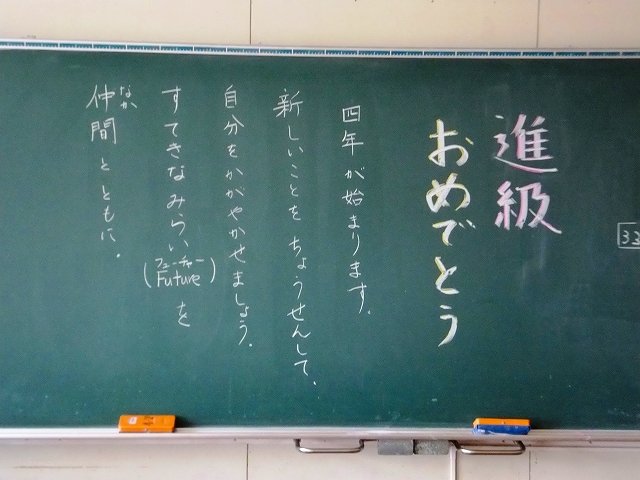 進級
おめでとう
四年が始まります。
新しいことをちょうせんして、
自分をかがやかせましょう。
すてきなみらい(Future フューチャー)を
仲間とともに。
なか
33